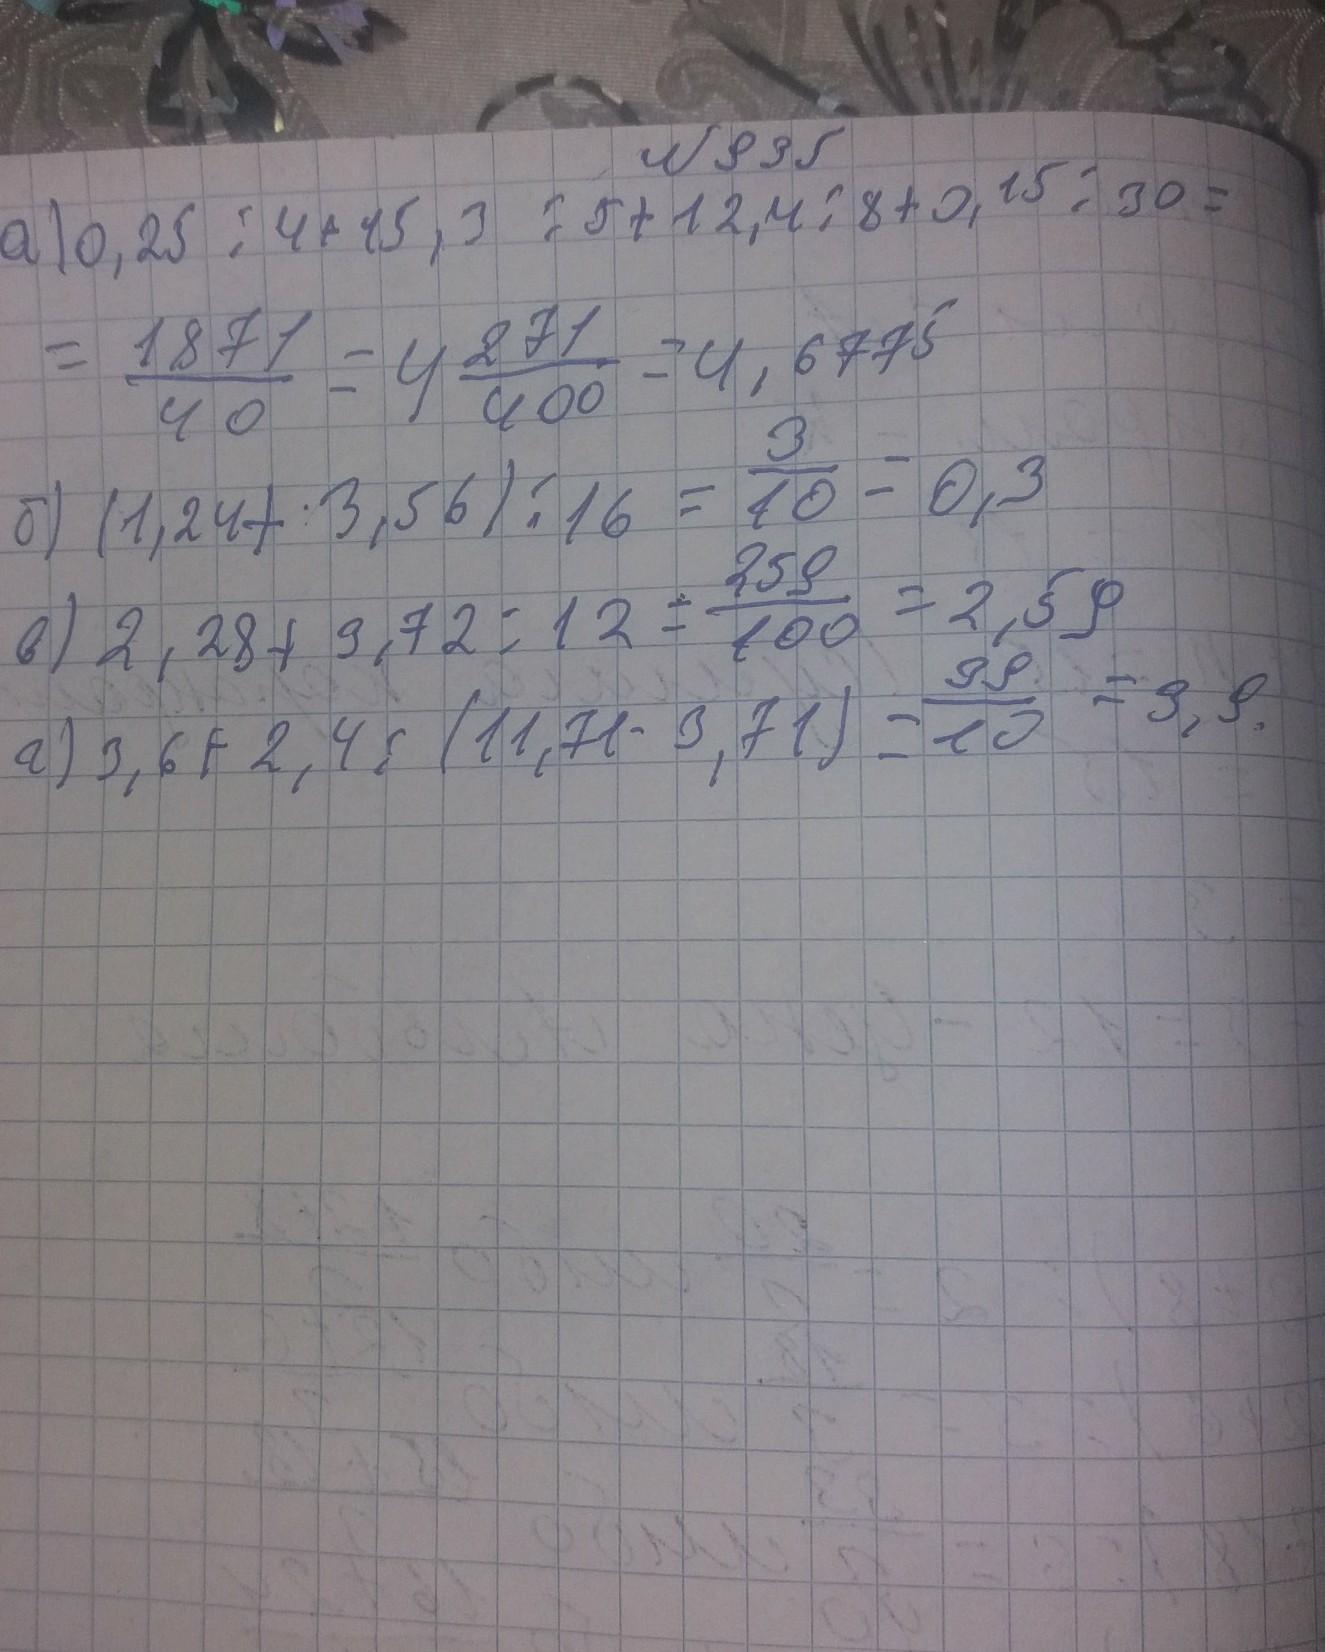 № 935
а) 0,25 : 4 + 15,3 : 5 + 12,4 : 8 + 0,15 : 30 =
= 1871/40 = 4 271/400 = 4,6775
б) (1,24 + 3,56) : 16 = 3/10 = 0,3
в) 2,28 + 3,72 : 12 = 259/100 = 2,59
г) 3,6 + 2,4 : (11,71 - 3,71) = 39/10 = 3,9.